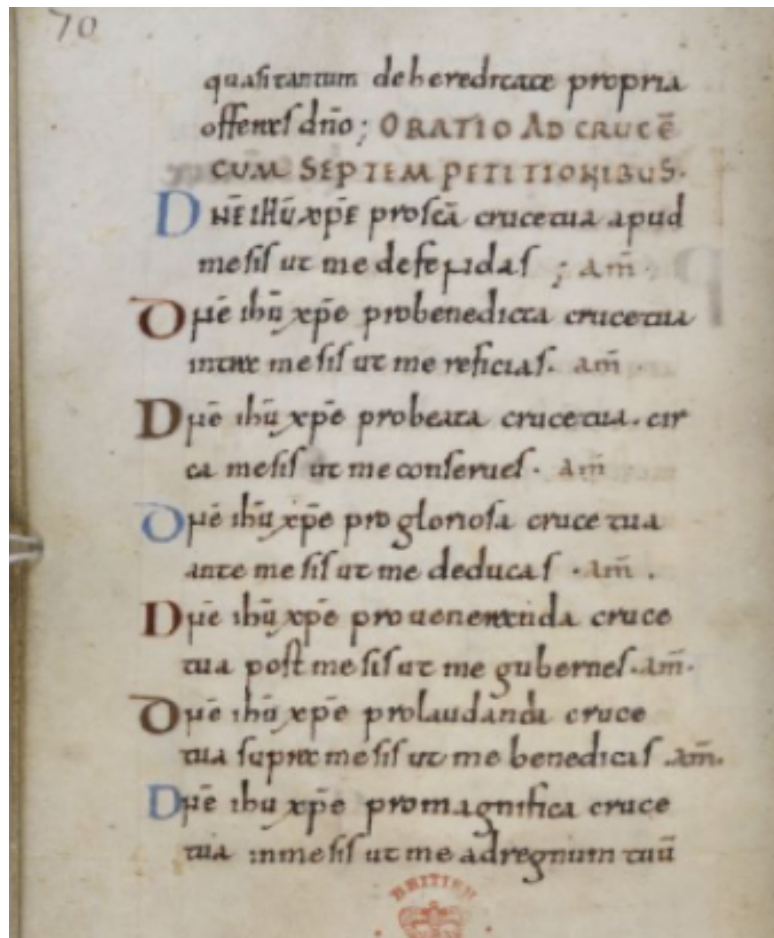 70
quasi tantum de hereditate propria
offeres dño; ORATIO AD CRUCĒ
CUM SEPTEM PETITIONIBUS·
DNĒ IHŪ XP̄E pro scā cruce tua apud
me sis ut me defendas ; am̄
Dnē ihū xp̄e pro benedicta cruce tua
intra me sis ut me reficias· am̄ ·
Dnē ihū xp̄e pro beata cruce tua. cir
ca me sis ut me conserues· am̄
Dnē ihū xp̄e pro gloriosa cruce tua
ante me sis ut me deducas · am̄ .
Dnē ihū xp̄e pro ueneranda cruce
tua post me sis ut me gubernes. am̄·
Dnē ihū xp̄e pro laudanda cruce
tua supra me sis ut me benedicas . am̄.
Dnē ihū xp̄e pro magnifica cruce
tua in me sis ut me ad regnum tuū
BRITISH